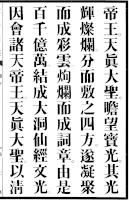 帝王天眞大聖瞻望寶光其光
輝燦爛分而敷之四方遂凝聚
而成彩雲炳爛而成詞章由是
百千億萬結成大洞仙經文光
因會諸天帝王天眞大聖以清